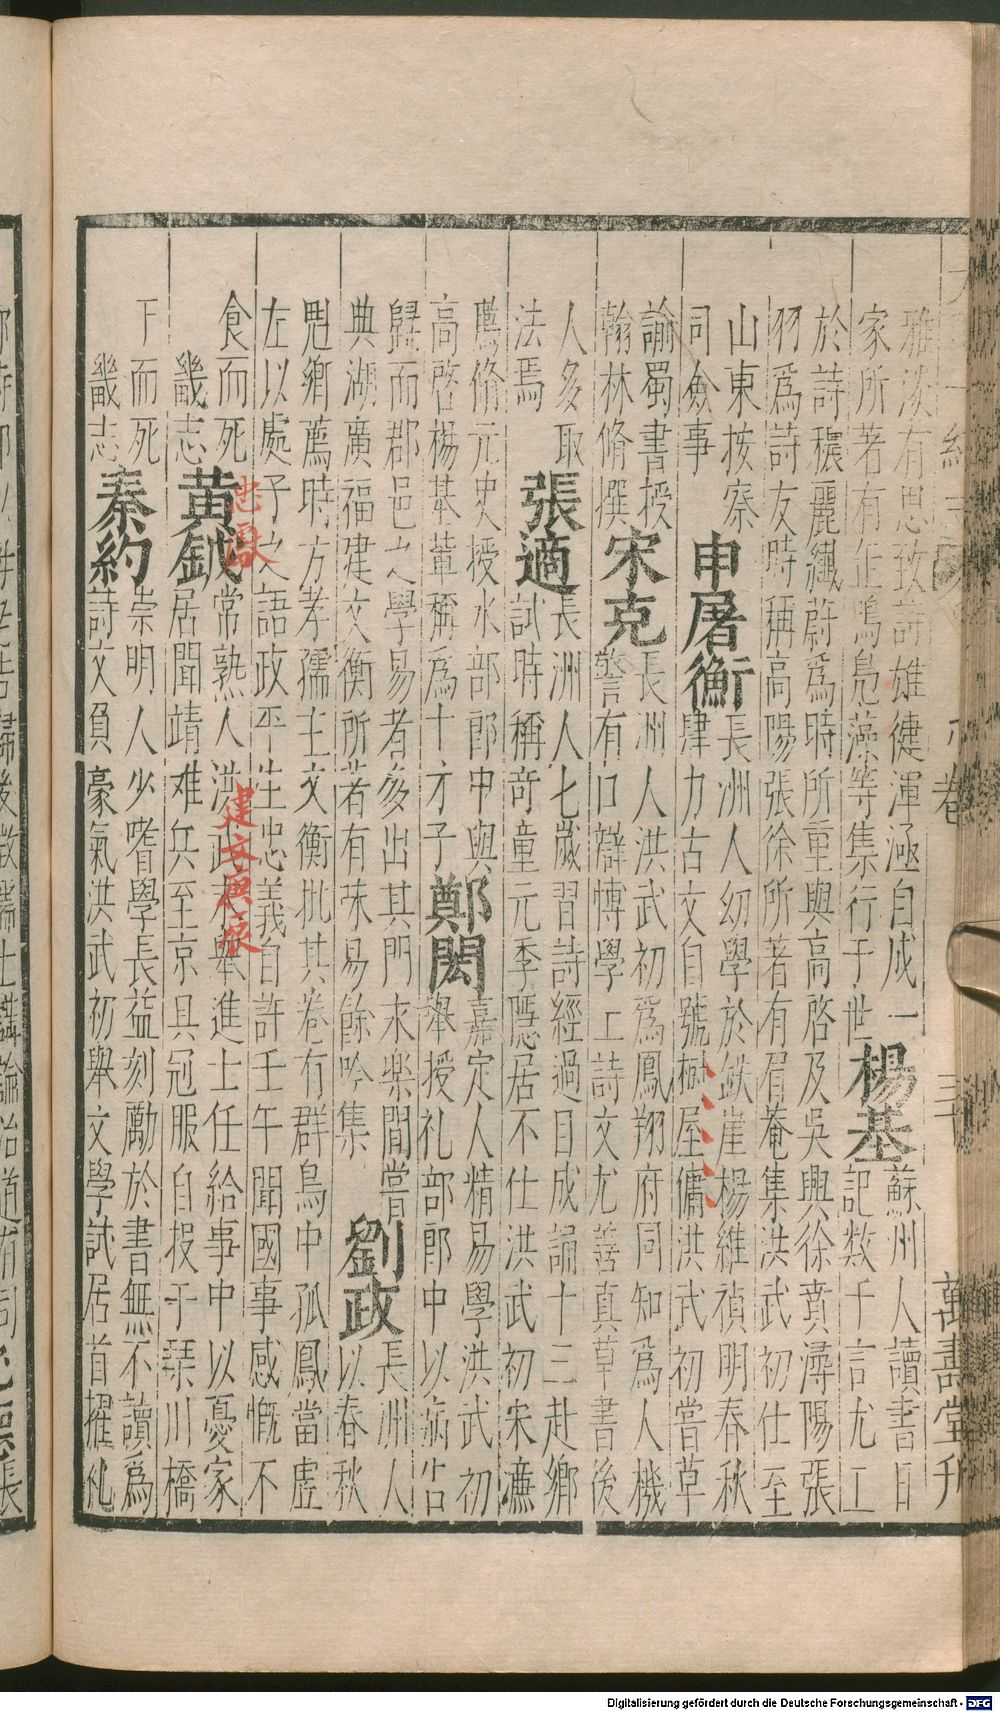 萬壽堂刋
雅淡有思致詩雄健渾涵自成一
家所著有正鳴㬎藻等集行于世
楊基
蘇州人讀書日
記数千言尤工
於詩穠麗纎蔚爲時所重與高啓及吳興徐賁潯陽張
羽爲詩友時稱高陽張徐所著有眉菴集洪武初仕至
山東按察
司僉事
申屠衡
長洲人幼學於鉄崖楊維禎明春秋
肆力古文自號樹屋傭洪武初嘗草
諭蜀書授
翰林脩撰
宋克
長洲人洪武初爲鳳翔府同知爲人機
警有口辯博學工詩文尤善真草書後
人多取
法焉
張適
長洲人七歲習詩經過目成誦十三赴鄉
試時稱奇童元季隱居不仕洪武初宋濂
薦脩元史授水部郎中與
高啓楊基輩稱爲十才子
鄭閎
嘉定人精易學洪武初
舉授礼部郎中以病告
歸而郡邑之學易者多出其門未樂間嘗
典湖廣福建文衡所著有味易餘吟集
劉政
長洲人
以春秋
魁鄉薦時方孝孺主文衡批其卷有群鳥中孤鳳當虚
左以處子之語政平生忠義自許壬午聞國事感慨不
忠鳳
建文庚辰
食而死
畿志
黄鉞
常熟人洪武末舉進士任給事中以憂家
居聞靖难兵至京具冠服自投于琹川橋
下而死
畿志
秦約
崇明人少嗜學長益刻勵於書無不讀爲
詩文負豪氣洪武初舉文學試居首擢礼
Digitalisierung gefördert durch die Deutsche Forschungsgemeinschaft - DFG